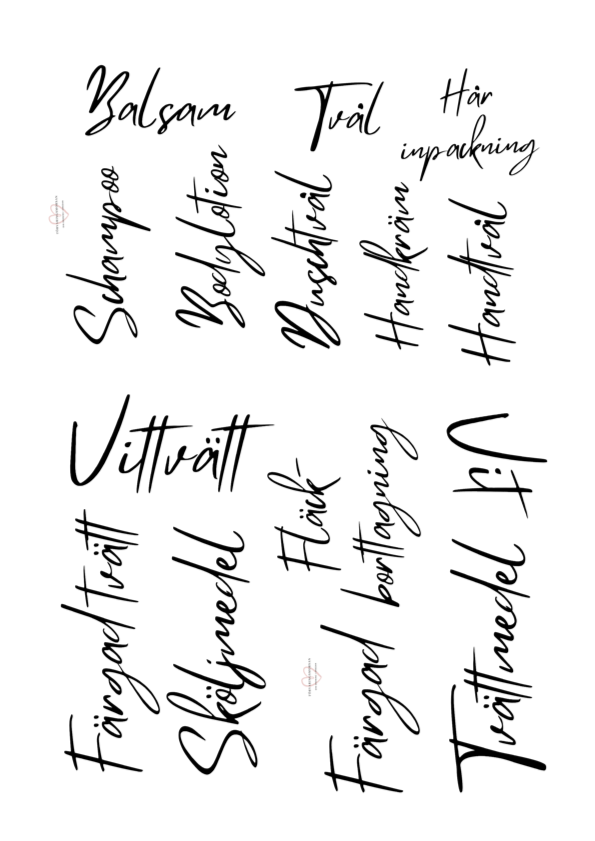 Balsam
Tvål
Hår
inpackning
Schampoo
Bodylotion
Duschtvål
Handkräm
Handtvål
Vittvätt
Färgad tvätt
Sköljmedel
Fläck-
borttagning
Färgad
Vit
Tvättmedel